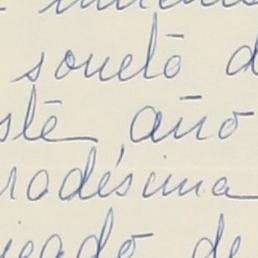 soneto d
ste año
radésima
icado de